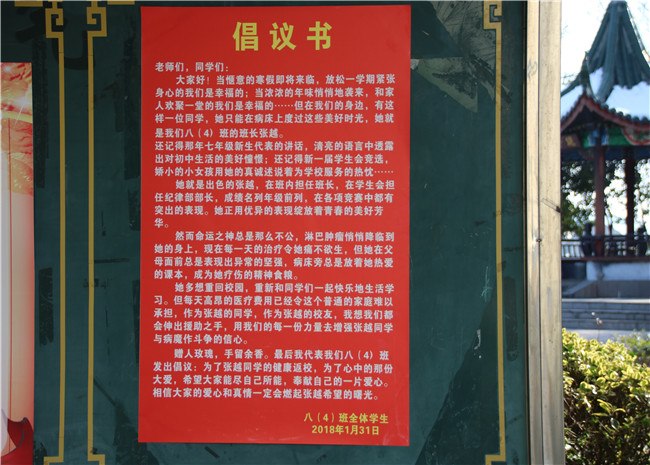 倡议书
老师们，同学们：
大家好！当惬意的寒假即将来临，放松一学期紧张
身心的我们是幸福的；当浓浓的年味悄悄地袭来，和家
人欢聚一堂的我们是幸福的……但在我们的身边，有这
样一位同学，她只能在病床上度过这些美好时光，她就
是我们八（4）班的班长张越。
还记得那年七年级新生代表的讲话，清亮的语言中透露
出对初中生活的美好憧憬；还记得新一届学生会竞选，
矫小的小女孩用她的真诚述说着为学校服务的热忱……
她就是出色的张越，在班内担任班长，在学生会担
任纪律部部长，成绩名列年级前列，在各项竞赛中都有
突出的表现。她正用优异的表现绽放着青春的美好芳
华。
然而命运之神总是那么不公，淋巴肿瘤悄悄降临到
她的身上，现在每一天的治疗令她痛不欲生，但她在父
母面前总是表现出异常的坚强，病床旁总是放着她热爱
的课本，成为她疗伤的精神食粮。
她多想重回校园，重新和同学们一起快乐地生活学
习。但每天高昂的医疗费用已经令这个普通的家庭难以
承担，作为张越的同学，作为张越的校友，我想我们都
会伸出援助之手，用我们的每一份力量去增强张越同学
与病魔作斗争的信心。
赠人玫瑰，手留余香。最后我代表我们八（4）班
发出倡议：为了张越同学的健康返校，为了心中的那份
大爱，希望大家能尽自己所能，奉献自己的一片爱心。
相信大家的爱心和真情一定会燃起张越希望的曙光。
八（4）班全体学生
2018年1月31日